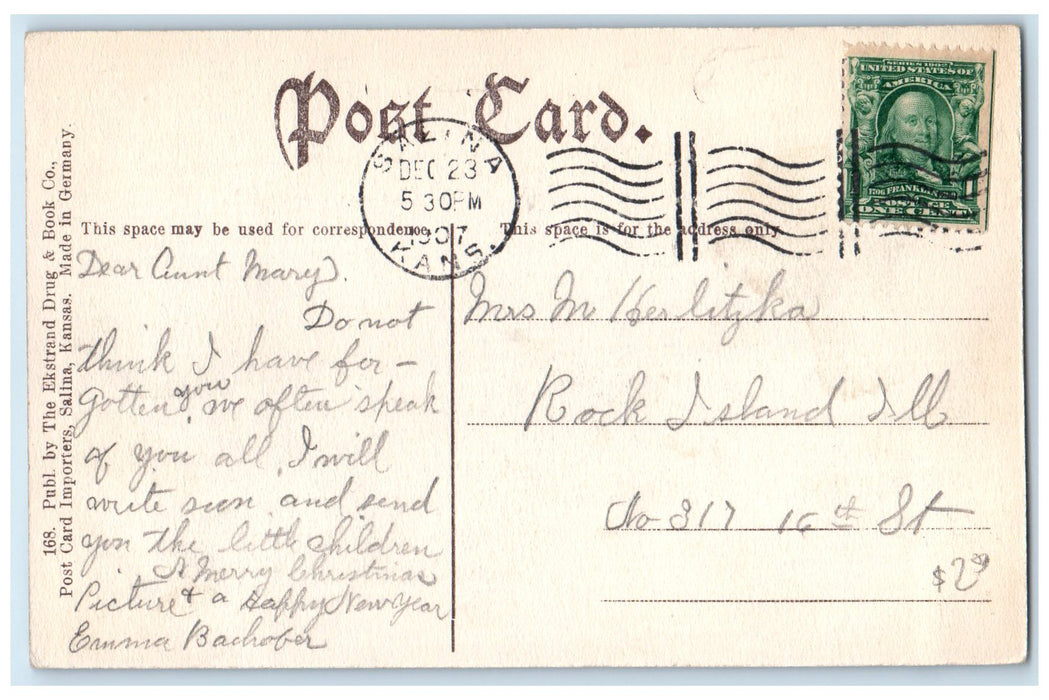 Post Card.
SALINA
DEC 23
5 30PM
1907
KANS.
SERIES 1902
UNITED STATES OF
AMERICA
1706 FRANKLIN
POSTAGE
ONE CENT
168. Publ. by The Ekstrand Drug & Book Co.,
Post Card Importers, Salina, Kansas. Made in Germany.
This space may be used for correspondence.
This space is for the address only.
Dear Aunt Mary).
Do not
think I have for-
gotten you we often speak
of you all. I will
write soon and send
you the little children
A Merry Christmas
Picture & a Happy New Year
Emma Bachofer
Mrs M Herlitzka
Rock Island Ill
No 317 16th St
$2.00